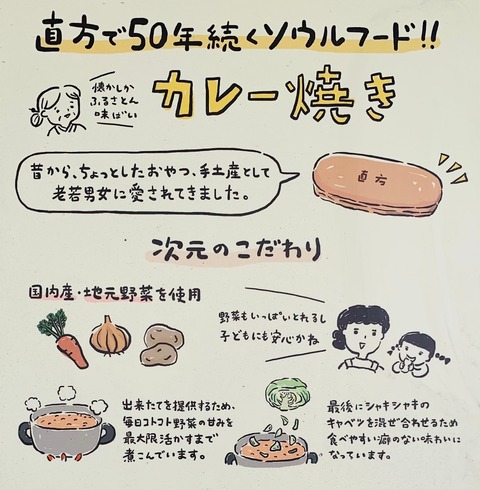 直方で50年続くソウルフード!!
懐かしか
ふるさとん
味ばい
カレー焼き
昔から、ちょっとしたおやつ、手土産として
老若男女に愛されてきました。
直方
次元のこだわり
国内産・地元野菜を使用
野菜もいっぱいとれるし
子どもにも安心かね
出来たてを提供するため、
毎日コトコト野菜の甘みを
最大限活かすまで
煮こんでいます。
最後にシャキシャキの
キャベツを混ぜ合わせるため
食べやすい癖のない味わいに
なっています。